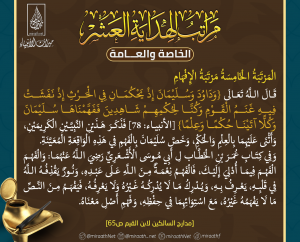 مراتب الهداية العشر
الخاصة والعـــامة
ميراث الأنبياء
المَرْتَبَةُ الخَامِسَةُ مَرْتَبَةُ الإِفْهَامِ
قَالَ اللهُ تَعَالَى {وَدَاوُودَ وَسُلَيْمَانَ إِذْ يَحْكُمَانِ فِي الْحَرْثِ إِذْ نَفَشَتْ
فِيهِ غَنَمُ الْقَوْمِ وَكُنَّا لِحُكْمِهِمْ شَاهِدِينَ فَفَهَّمْنَاهَا سُلَيْمَانَ
وَكُلًّا آتَيْنَا حُكْمًا وَعِلْمًا} [الأنبياء: 78] فَذَكَرَ هَذَيْنِ النَّبِيَّيْنِ الْكَرِيمَيْنِ،
وَأَثْنَى عَلَيْهِمَا بِالْعِلْمِ وَالْحُكْمِ، وَخَصَّ سُلَيْمَانَ بِالْفَهْمِ فِي هَذِهِ الْوَاقِعَةِ الْمُعَيَّنَةِ.
وَفِي كِتَابِ عُمَرَ بْنِ الْخَطَّابِ لِأَبِي مُوسَى الْأَشْعَرِيِّ رَضِيَ اللهُ عَنْهُمَا: وَالْفَهْمَ
الْفَهْمَ فِيمَا أُدْلِيَ إِلَيْكَ، فَالْفَهْمُ نِعْمَةٌ مِنَ اللهِ عَلَى عَبْدِهِ، وَنُورٌ يَقْذِفُهُ اللهُ
فِي قَلْبِهِ، يَعْرِفُ بِهِ، وَيُدْرِكُ مَا لَا يُدْرِكُهُ غَيْرُهُ وَلَا يَعْرِفُهُ، فَيَفْهَمُ مِنَ النَّصِّ
مَا لَا يَفْهَمُهُ غَيْرُهُ، مَعَ اسْتِوَائِهِمَا فِي حِفْظِهِ، وَفَهْمِ أَصْلِ مَعْنَاهُ.
[مدارج السالكين لابن القيم ص65]
@miraathNet @miraathnet @miraathNet